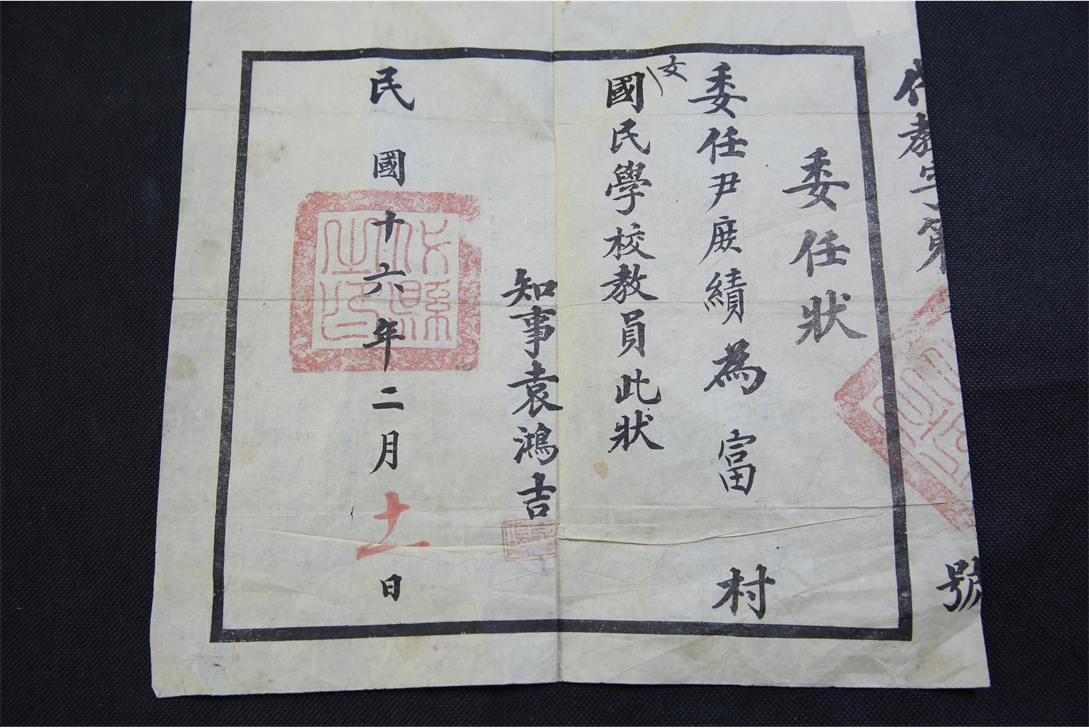 代教字第 號
委任狀
委任尹庶績為富 村
女國民學校教員此狀
知事袁鴻吉
民國十六年二月十一日
代縣之印